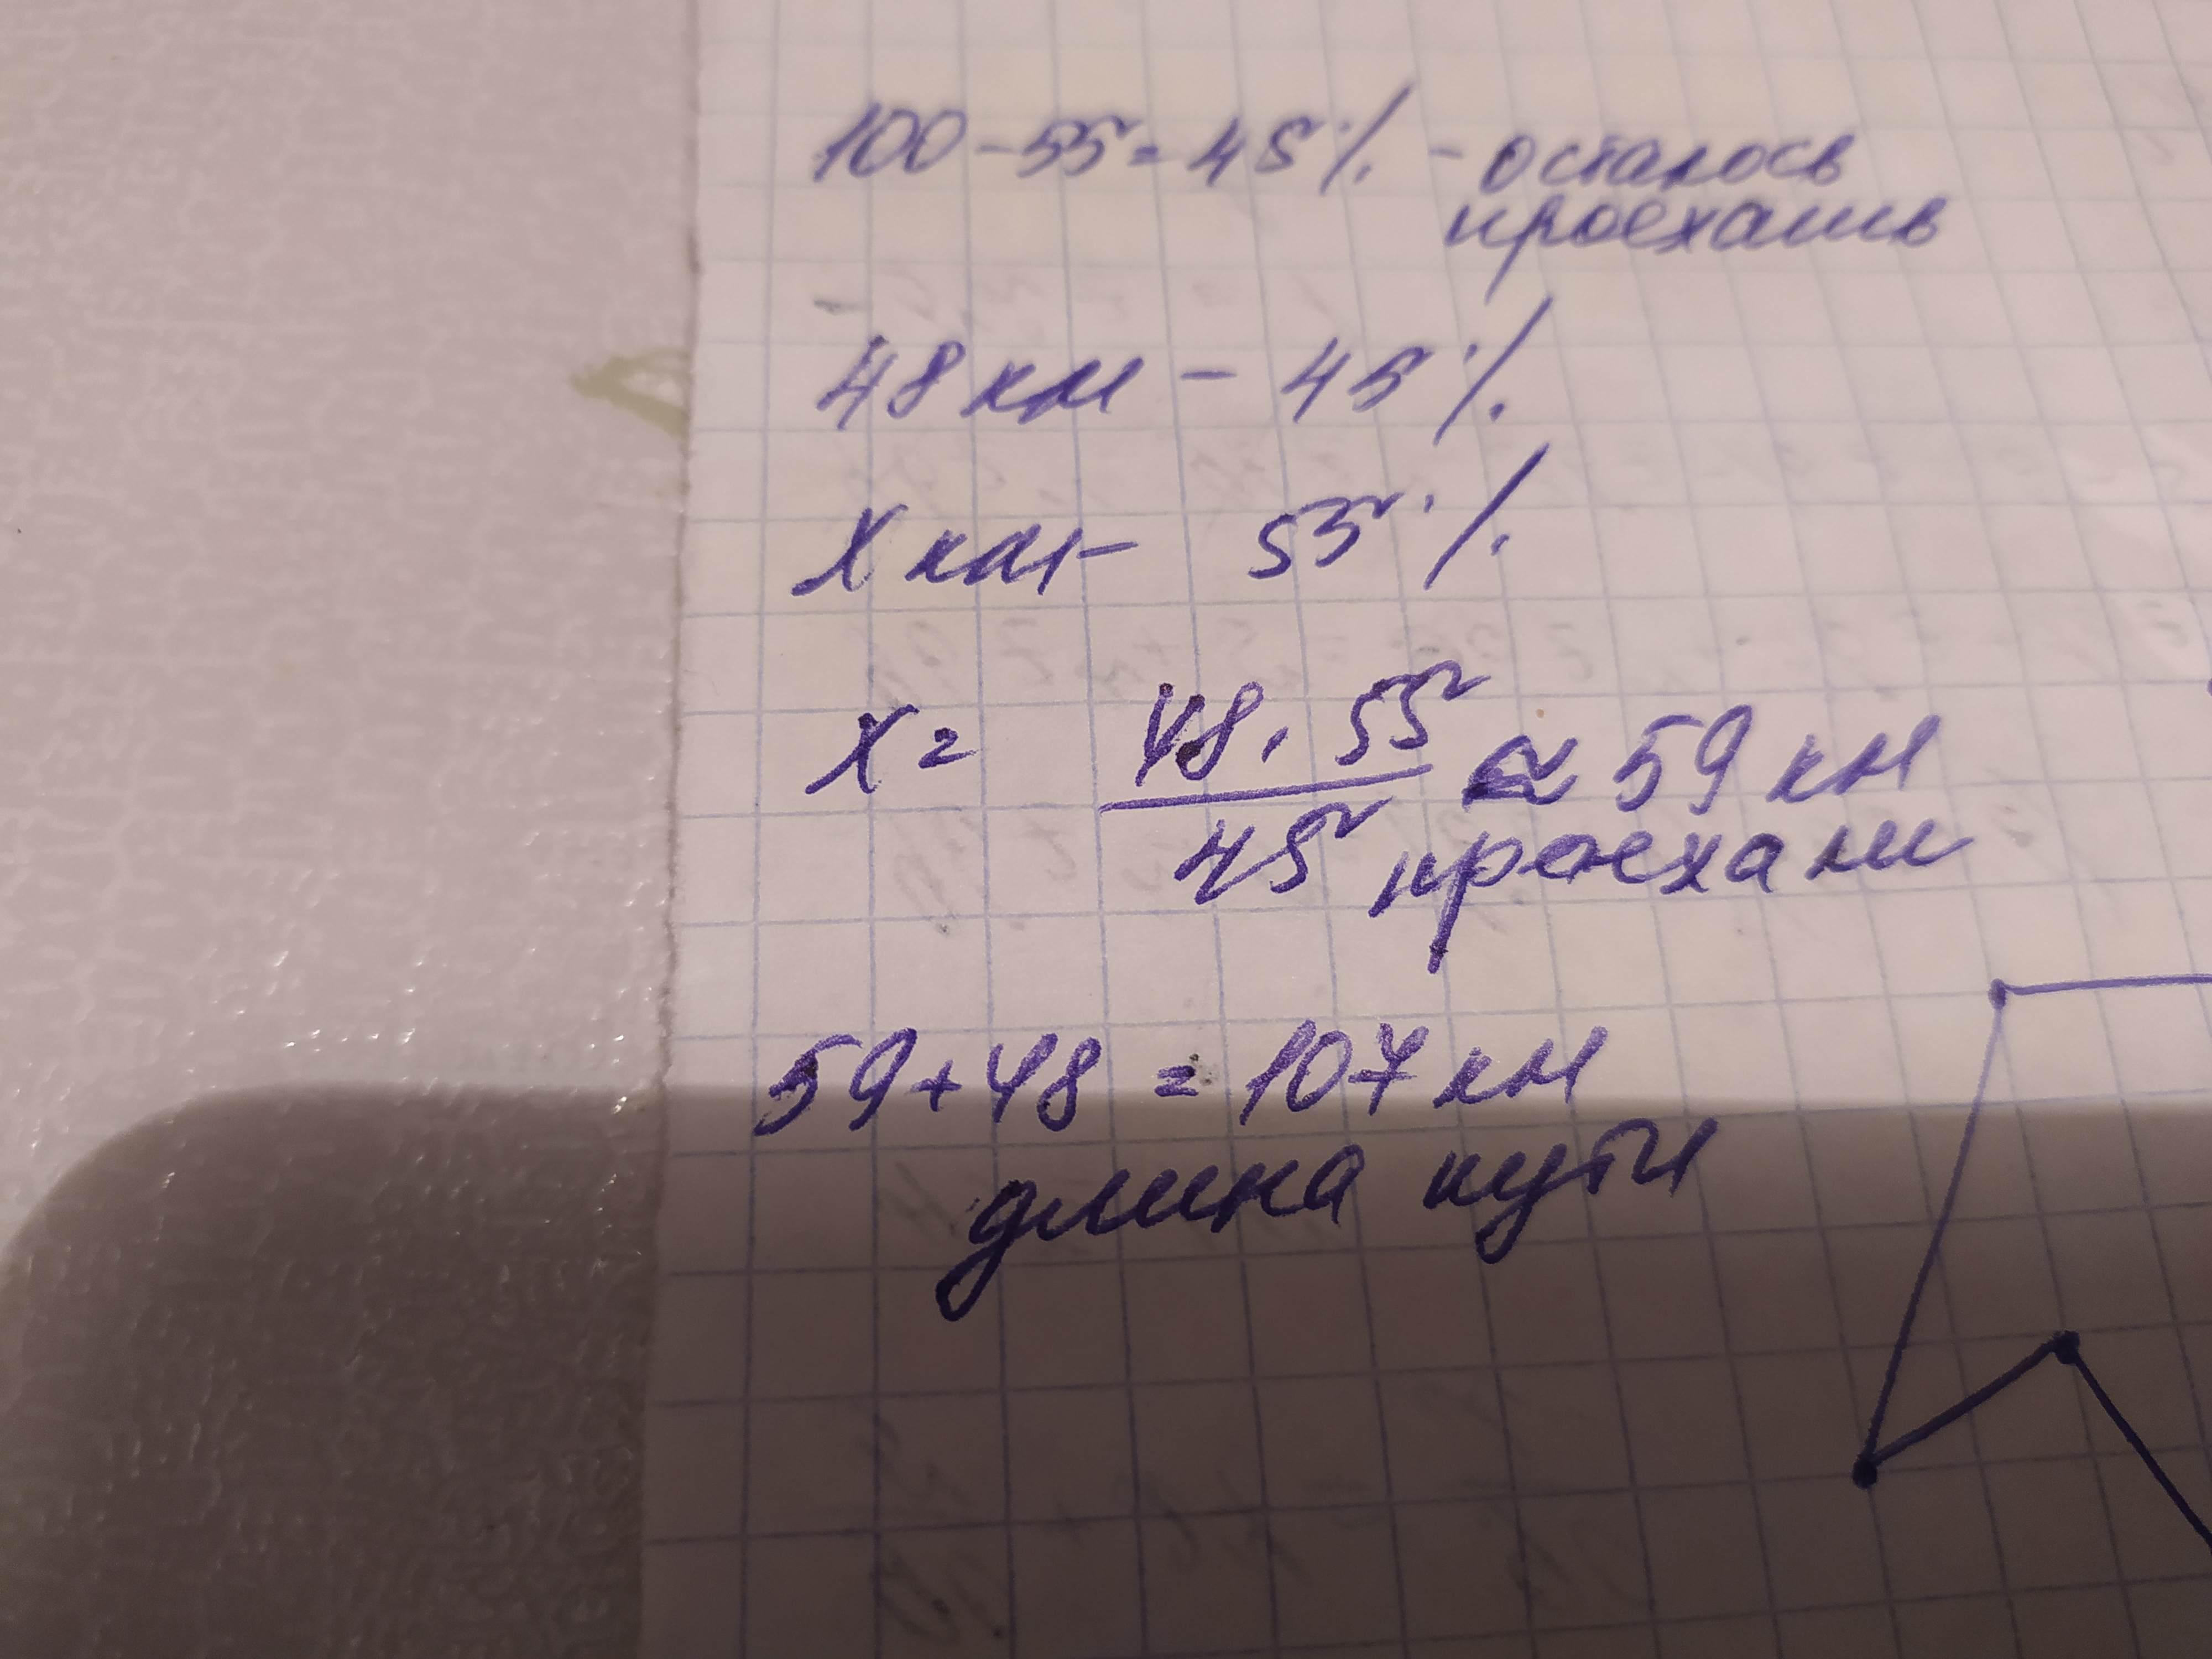 100 - 55 = 45% - осталось
проехать
48 км - 45%
х км - 55%
х = 48 · 55 / 45 ≈ 59 км
проехали
59 + 48 = 107 км
длина пути